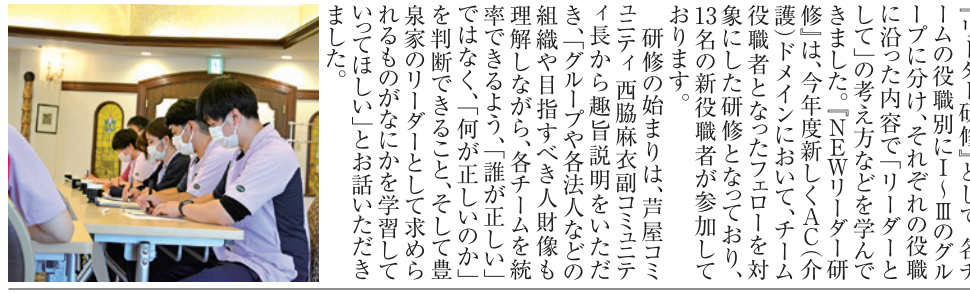 『リーダー研修』として、各チ
ームの役職別にⅠ～Ⅲのグル
ープに分け、それぞれの役職
に沿った内容で「リーダーと
して」の考え方などを学んで
きました。『NEWリーダー研
修』は、今年度新しくAC（介
護）ドメインにおいて、チーム
役職者となったフェローを対
象にした研修となっており、
13名の新役職者が参加して
おります。
研修の始まりは、芦屋コミ
ュニティ 西脇麻衣副コミュニテ
ィ長から趣旨説明をいただ
き、「グループや各法人などの
組織や目指すべき人財像も
理解しながら、各チームを統
率できるよう、「誰が正しい」
ではなく、「何が正しいのか」
を判断できること、そして豊
泉家のリーダーとして求めら
れるものがなにかを学習して
いってほしい」とお話いただき
ました。